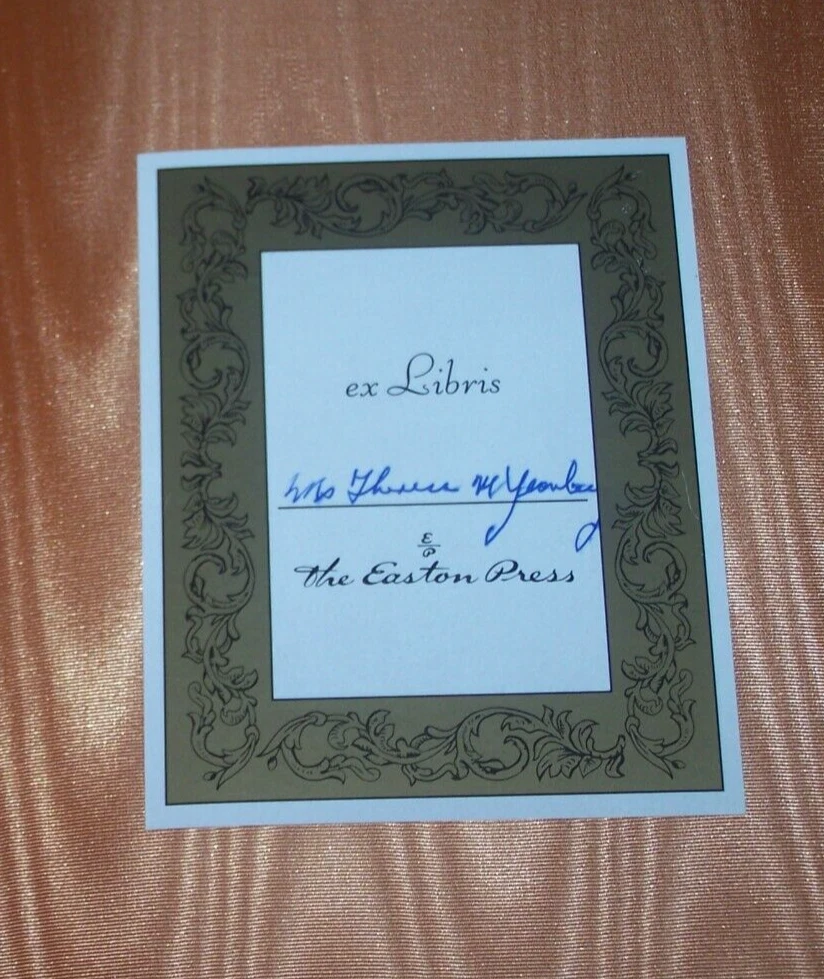 ex Libris
Mrs Theresa M
E
P
the Easton Press